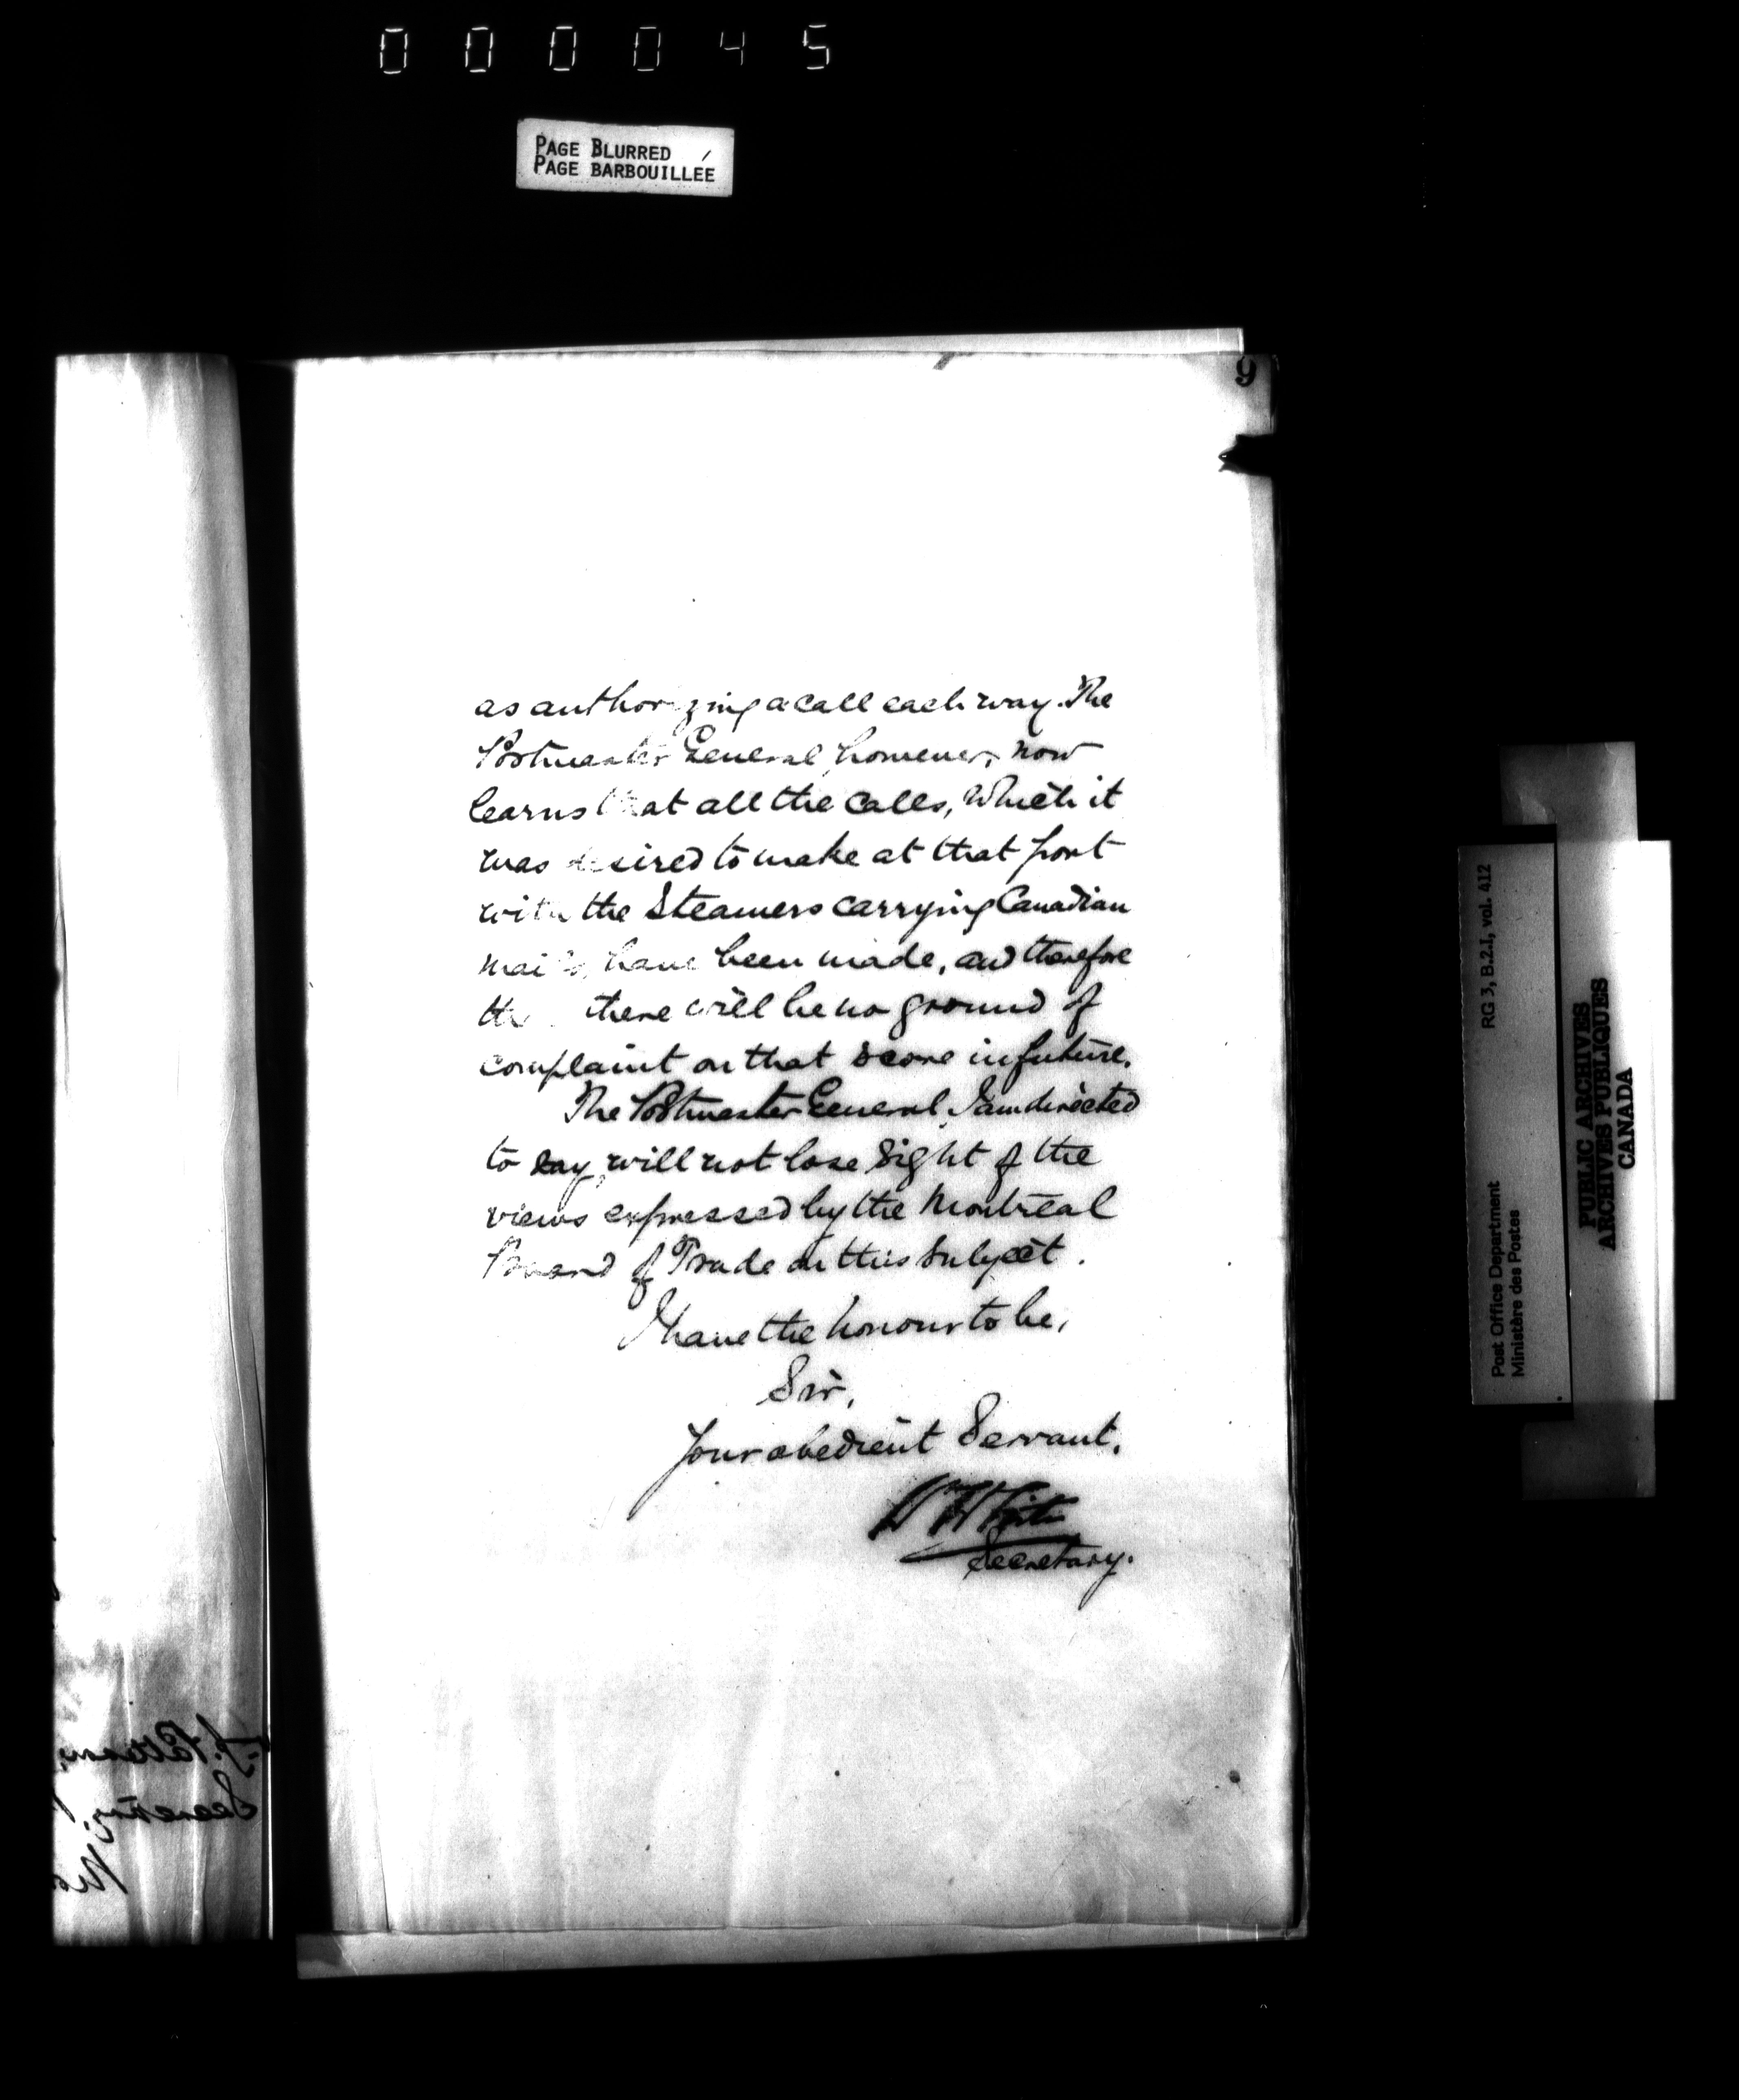 000045
PAGE BLURRED
PAGE BARBOUILLÉE
9
as authorizing a call each way. The
Postmaster General, however, now
learns that all the calls, which it
was desired to make at that port
with the Steamers carrying Canadian
mails, have been made, and therefore
there will be no ground of
complaint on that score in future.
The Postmaster General, I am directed
to say, will not lose sight of the
views expressed by the Montreal
Board of Trade on this subject.
I have the honour to be,
Sir,
Your obedient Servant,
Secretary.
RG 3, B.2.I, vol. 412
Post Office Department
Ministère des Postes
PUBLIC ARCHIVES
ARCHIVES PUBLIQUES
CANADA